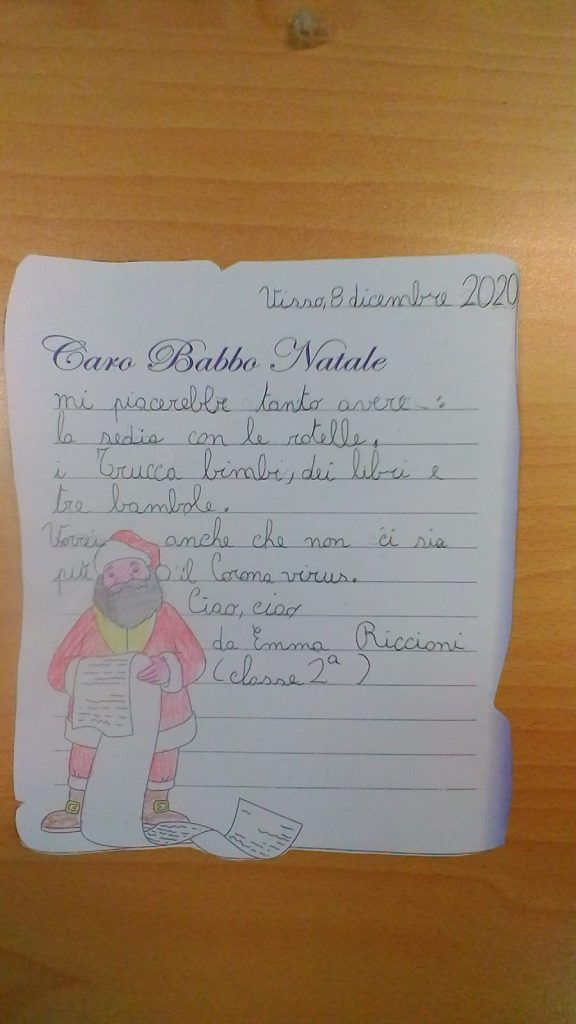 Visso, 8 dicembre 2020
Caro Babbo Natale
mi piacerebbe tanto avere-:
la sedia con le rotelle,
i Trucca bimbi, dei libri e
tre bambole.
Vorrei anche che non ci sia
più il Corona virus.
Ciao, ciao
da Emma Riccioni
(classe 2ª)